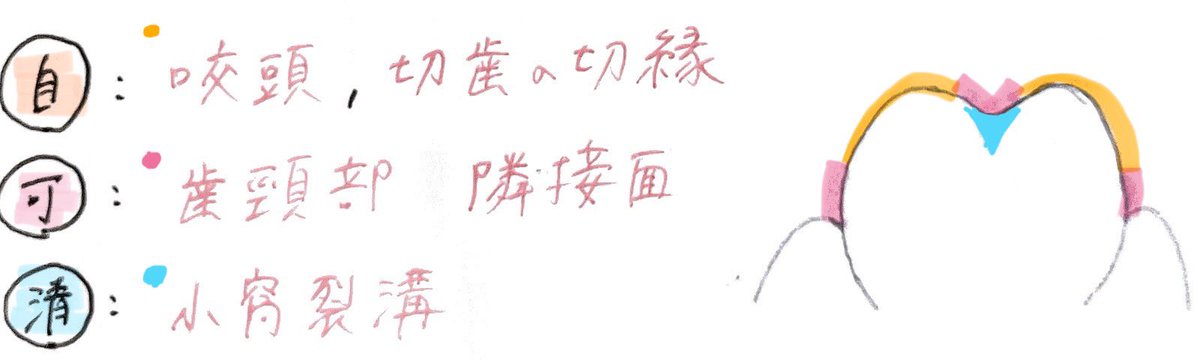 自: 咬頭, 切歯の切縁
可: 歯頸部 隣接面
清: 小窩裂溝